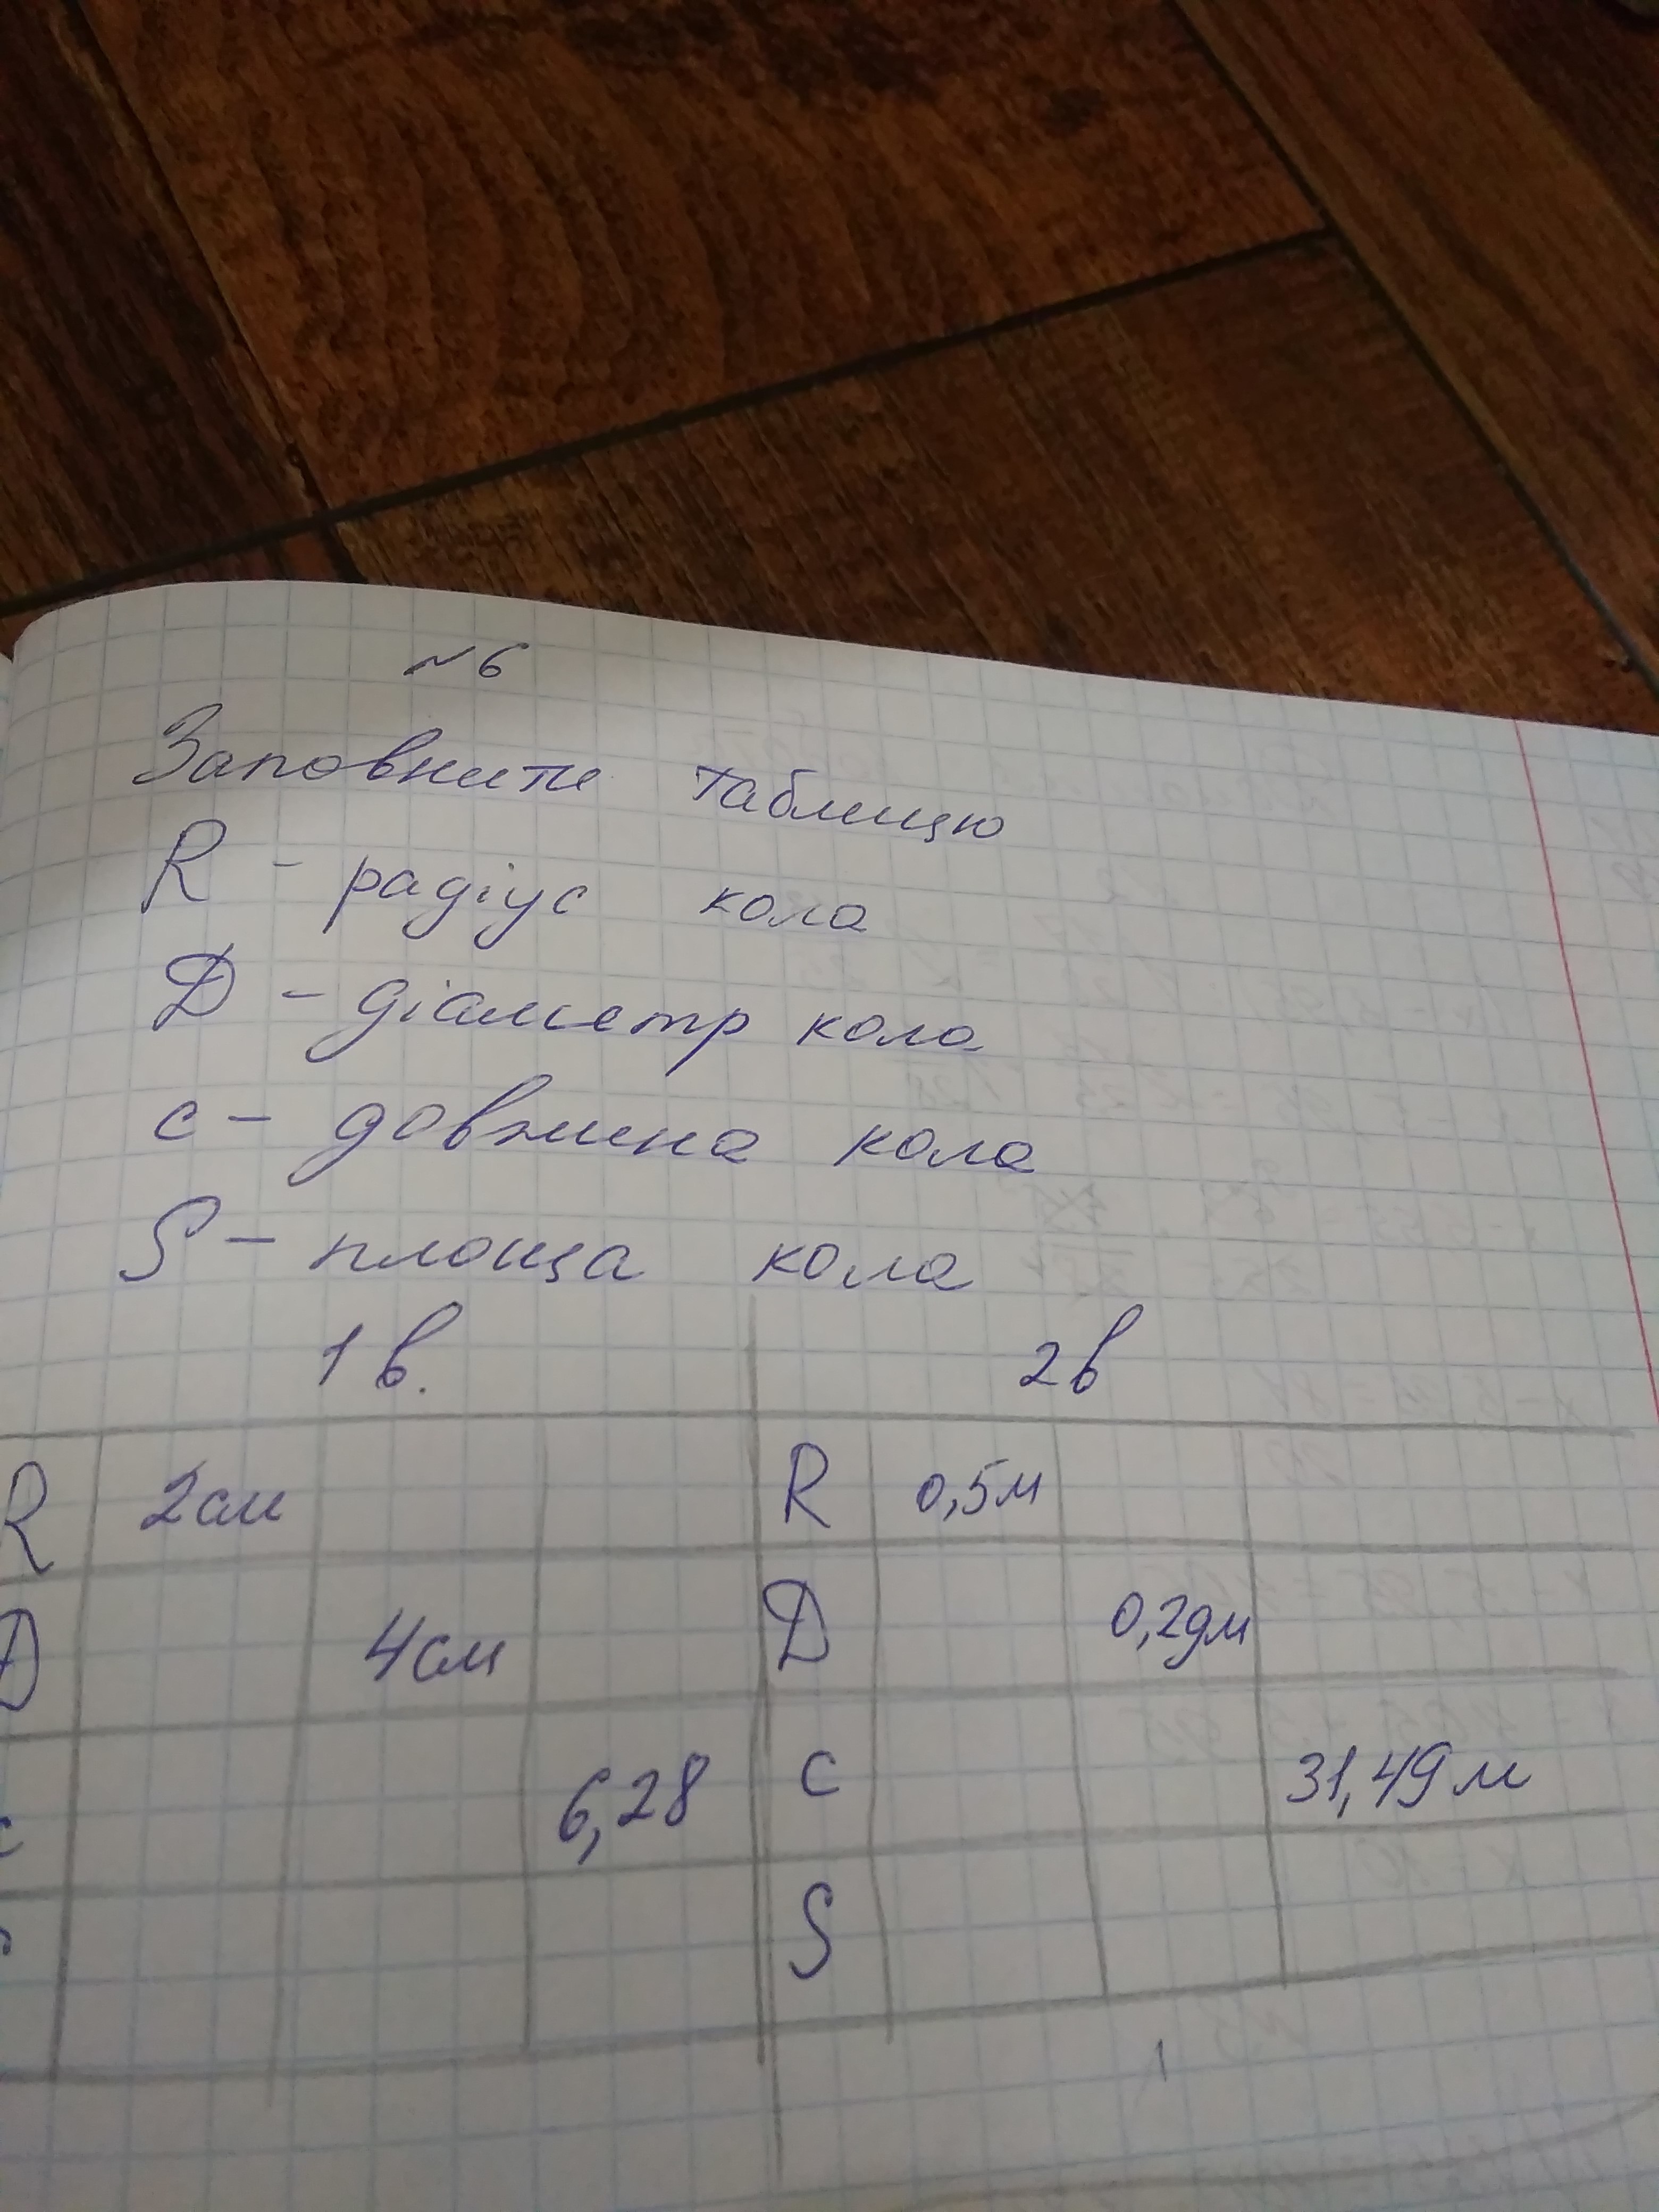 №6
Заповнити таблицю
R - радіус кола
D - діаметр кола
c - довжина кола
S - площа кола
1 в. 2 в
R 2см R 0,5м
D 4см D 0,2дм
c 6,28 c 31,49 м
S S